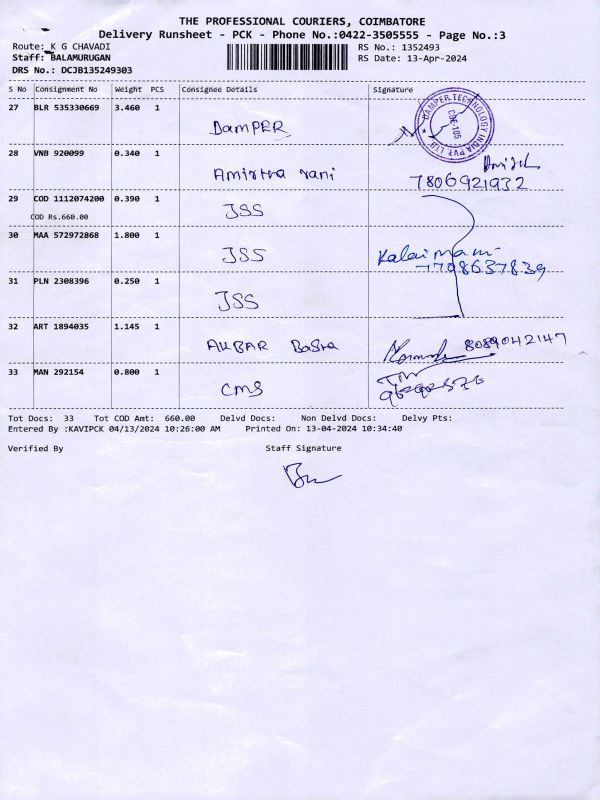 THE PROFESSIONAL COURIERS, COIMBATORE
Delivery Runsheet - PCK - Phone No.:0422-3505555 - Page No.:3
Route: K G CHAVADI
RS No.: 1352493
Staff: BALAMURUGAN
RS Date: 13-Apr-2024
DRS No.: DCJB135249303
S No Consignment No Weight PCS Consignee Details Signature
27 BLR 535330669 3.460 1
DamPER
DAMPER TECHNOLOGY INDIA PVT. LTD
CBE-105
28 VNB 920099 0.340 1
Amirtha rani
7806921932
29 COD 1112074200 0.390 1
JSS
COD Rs.660.00
30 MAA 572972868 1.800 1
JSS
Kalaimani
7708637839
31 PLN 2308396 0.250 1
JSS
32 ART 1894035 1.145 1
AKBAR Basha
8089042147
33 MAN 292154 0.800 1
CMS
Tot Docs: 33 Tot COD Amt: 660.00 Delvd Docs: Non Delvd Docs: Delvy Pts:
Entered By :KAVIPCK 04/13/2024 10:26:00 AM Printed On: 13-04-2024 10:34:40
Verified By Staff Signature